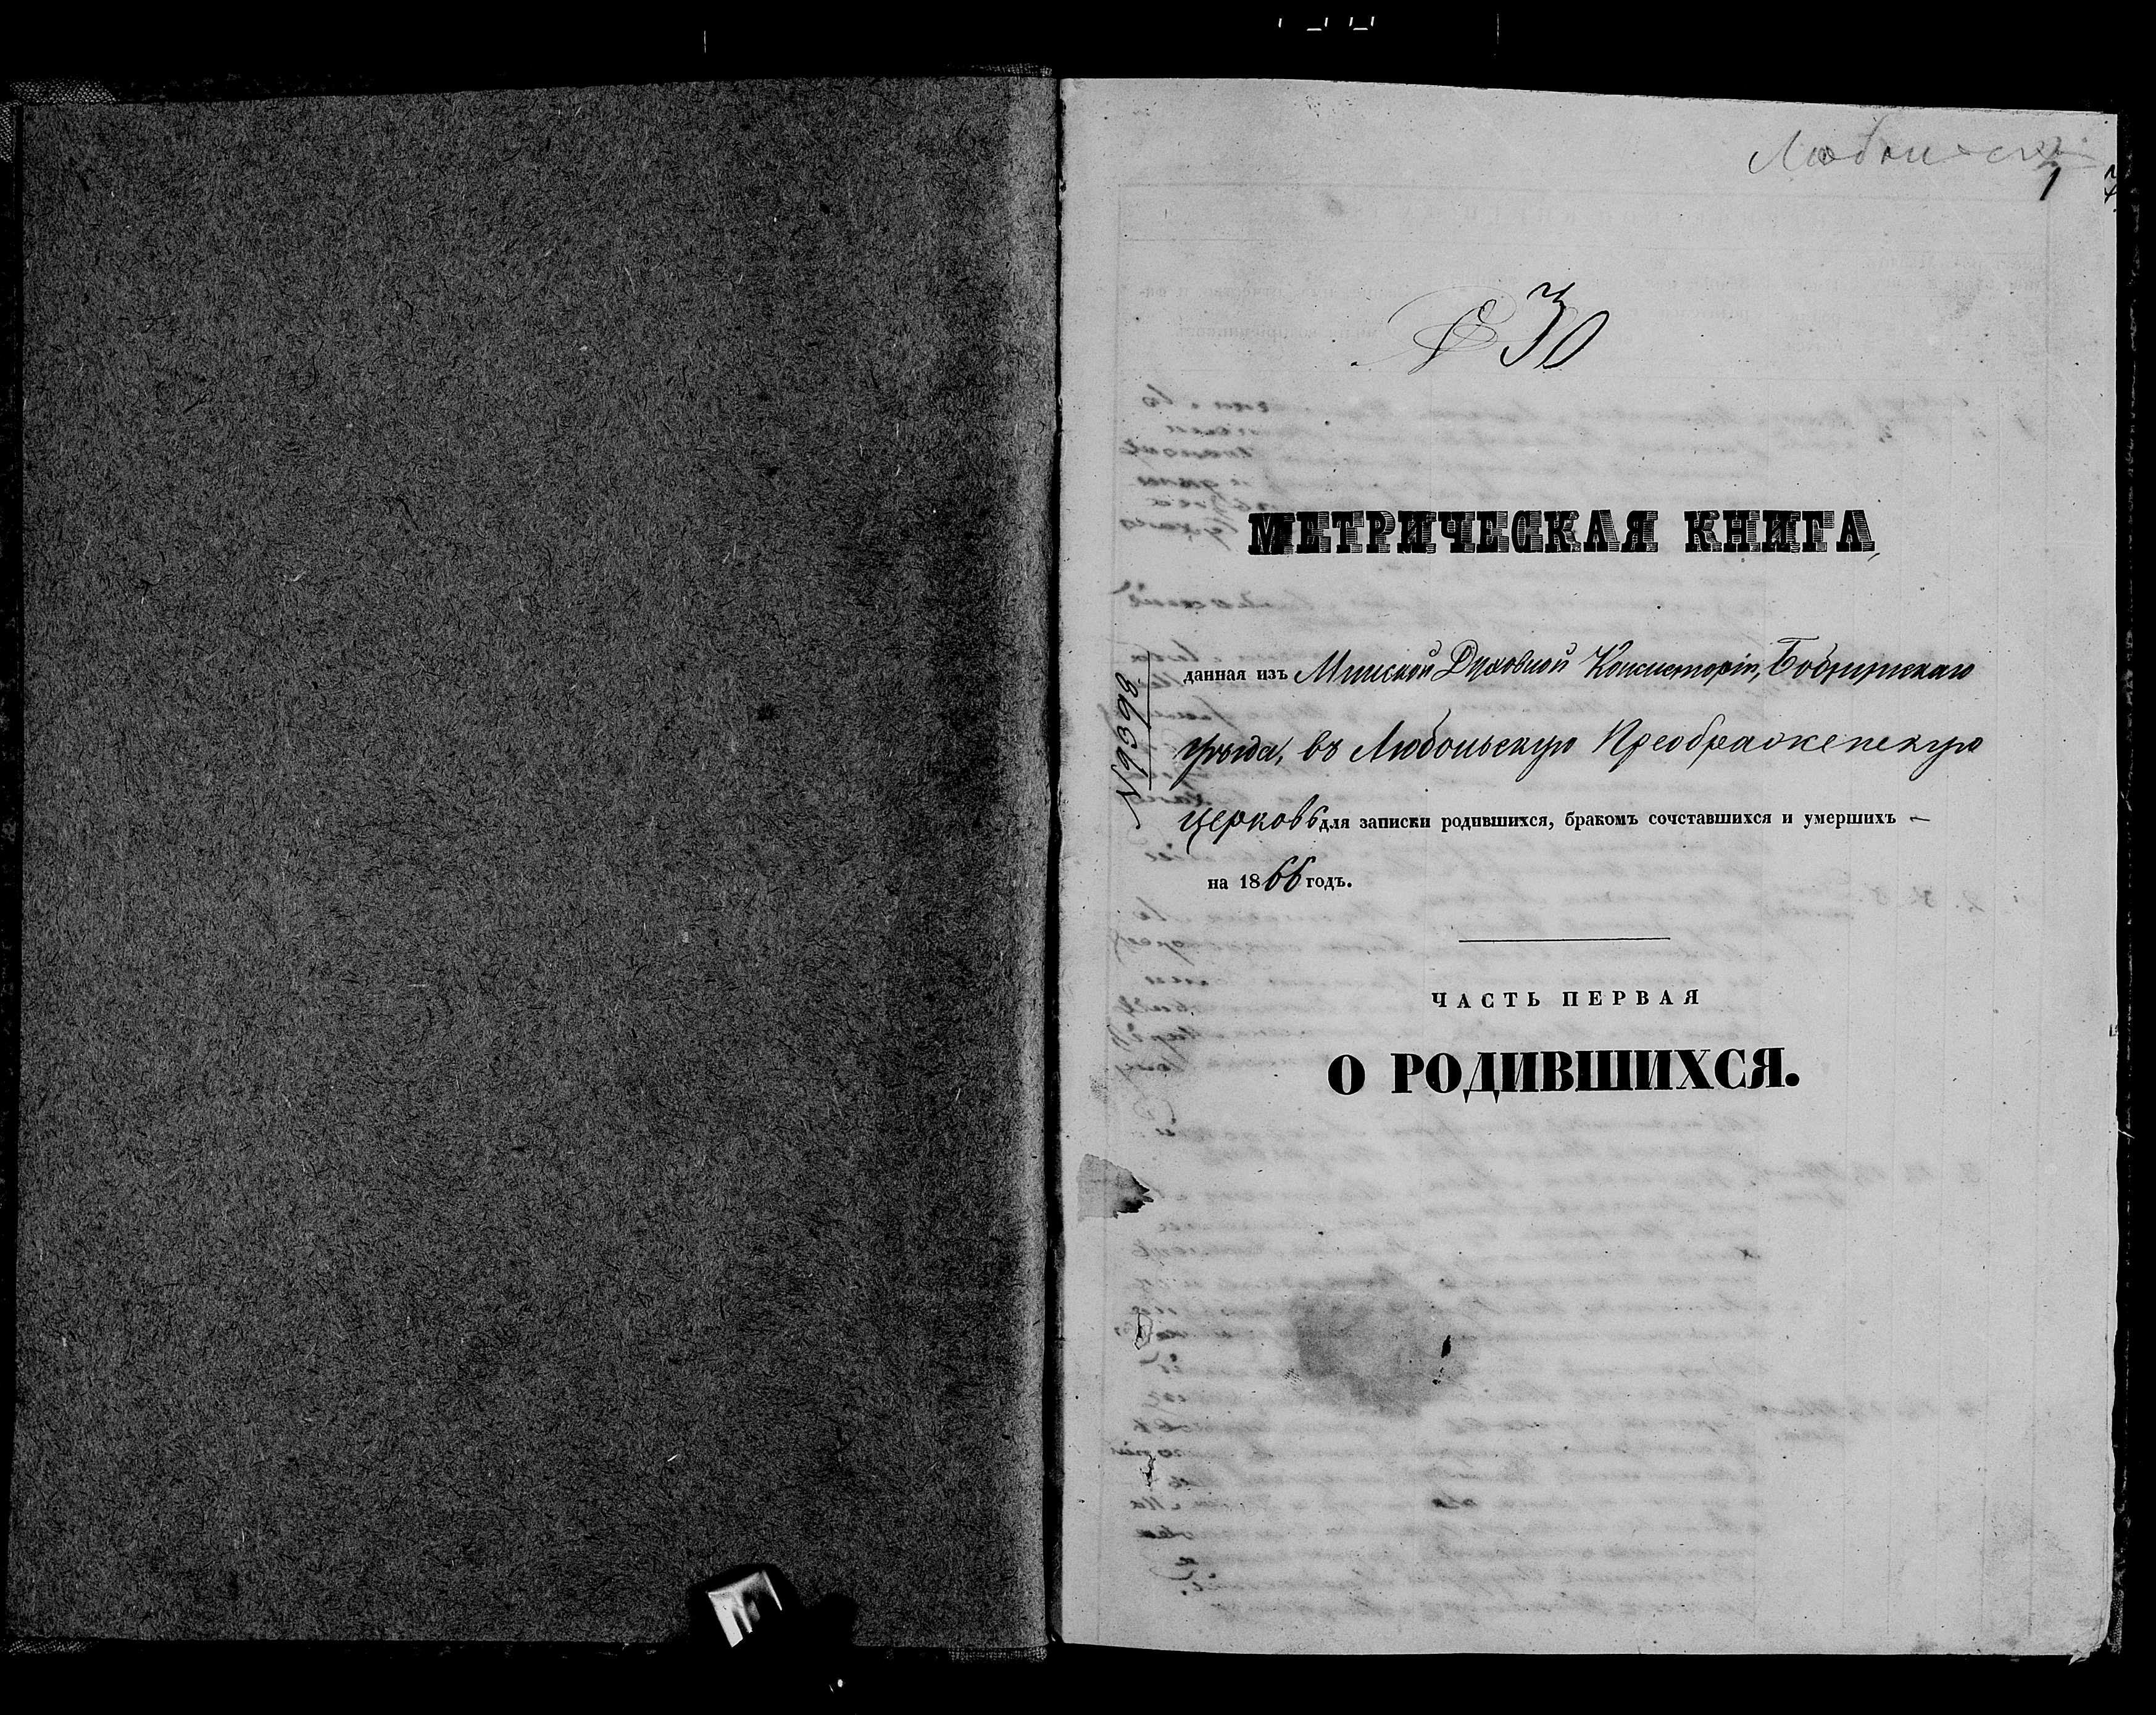 1
№ 30
МЕТРИЧЕСКАЯ КНИГА,
данная изъ Минской Духовной Консисторіи, Бобруйскаго
уѣзда, въ Любоньскую Преображенскую
церковь для записки родившихся, бракомъ сочставшихся и умершихъ —
на 1866 годъ.
№ 9398
ЧАСТЬ ПЕРВАЯ
О РОДИВШИХСЯ.